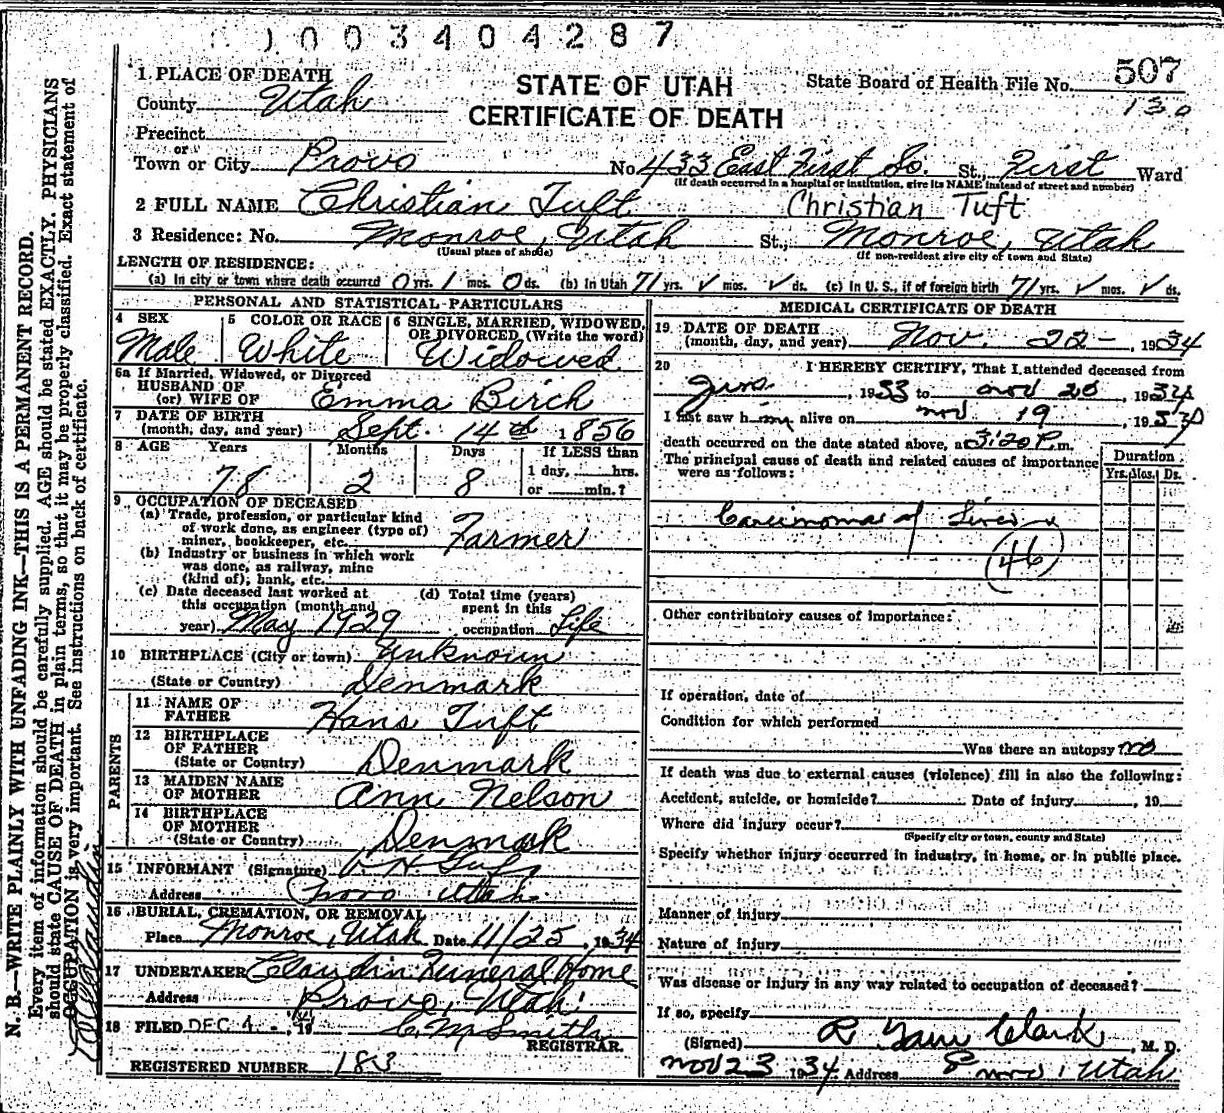 003404287
1 PLACE OF DEATH
STATE OF UTAH
CERTIFICATE OF DEATH
State Board of Health File No. 507
130
County Utah
Precinct
or
Town or City Provo No. 433 East First So. St., First Ward
(If death occurred in a hospital or institution, give its NAME instead of street and number)
2 FULL NAME Christian Tuft Christian Tuft
3 Residence: No. Monroe, Utah St., Monroe, Utah
(Usual place of abode) (If non-resident give city of town and State)
LENGTH OF RESIDENCE:
(a) In city or town where death occurred 0 yrs. 1 mos. 0 ds. (b) In Utah 71 yrs. ✓ mos. ✓ ds. (c) In U. S., if of foreign birth 71 yrs. ✓ mos. ✓ ds.
PERSONAL AND STATISTICAL PARTICULARS
4 SEX
Male
5 COLOR OR RACE
White
6 SINGLE, MARRIED, WIDOWED, OR DIVORCED (Write the word)
Widowed
6a If Married, Widowed, or Divorced
HUSBAND OF
(or) WIFE OF Emma Birch
7 DATE OF BIRTH
(month, day, and year) Sept. 14th 1856
8 AGE Years Months Days If LESS than
1 day, hrs.
or min.?
78 2 8
9 OCCUPATION OF DECEASED
(a) Trade, profession, or particular kind
of work done, as engineer (type of)
miner, bookkeeper, etc. Farmer
(b) Industry or business in which work
was done, as railway, mine
(kind of); bank, etc.
(c) Date deceased last worked at
this occupation (month and
year) May 1929
(d) Total time (years)
spent in this
occupation Life
10 BIRTHPLACE (City or town) Unknown
(State or Country) Denmark
PARENTS
11 NAME OF
FATHER Hans Tuft
12 BIRTHPLACE
OF FATHER
(State or Country) Denmark
13 MAIDEN NAME
OF MOTHER Ann Nelson
14 BIRTHPLACE
OF MOTHER
(State or Country) Denmark
15 INFORMANT (Signature) H. Tuft
Address Provo Utah
16 BURIAL, CREMATION, OR REMOVAL
Place Monroe, Utah Date 11/25, 1934
17 UNDERTAKER Claudin Funeral Home
Address Provo, Utah
18 FILED DEC 4 - 19 C M Smith
REGISTRAR.
REGISTERED NUMBER 183
MEDICAL CERTIFICATE OF DEATH
19 DATE OF DEATH
(month, day, and year) Nov. 22 - , 1934
20 I HEREBY CERTIFY, That I attended deceased from
, 1933 to Nov 20, 1934
I last saw him alive on Nov 19, 1934
death occurred on the date stated above, at 3:20 P.m.
The principal cause of death and related causes of importance
were as follows:
Duration
Yrs. Mos. Ds.
Carcinoma of Liver
(46)
Other contributory causes of importance:
If operation, date of
Condition for which performed
Was there an autopsy no
If death was due to external causes (violence) fill in also the following:
Accident, suicide, or homicide? Date of injury , 19
Where did injury occur?
(Specify city or town, county and State)
Specify whether injury occurred in industry, in home, or in public place.
Manner of injury
Nature of injury
Was disease or injury in any way related to occupation of deceased?
If so, specify
(Signed) R Clark M. D.
Nov 23 1934 Address Provo, Utah
N. B.—WRITE PLAINLY WITH UNFADING INK—THIS IS A PERMANENT RECORD.
Every item of information should be carefully supplied. AGE should be stated EXACTLY. PHYSICIANS
should state CAUSE OF DEATH in plain terms, so that it may be properly classified. Exact statement of
OCCUPATION is very important. See instructions on back of certificate.